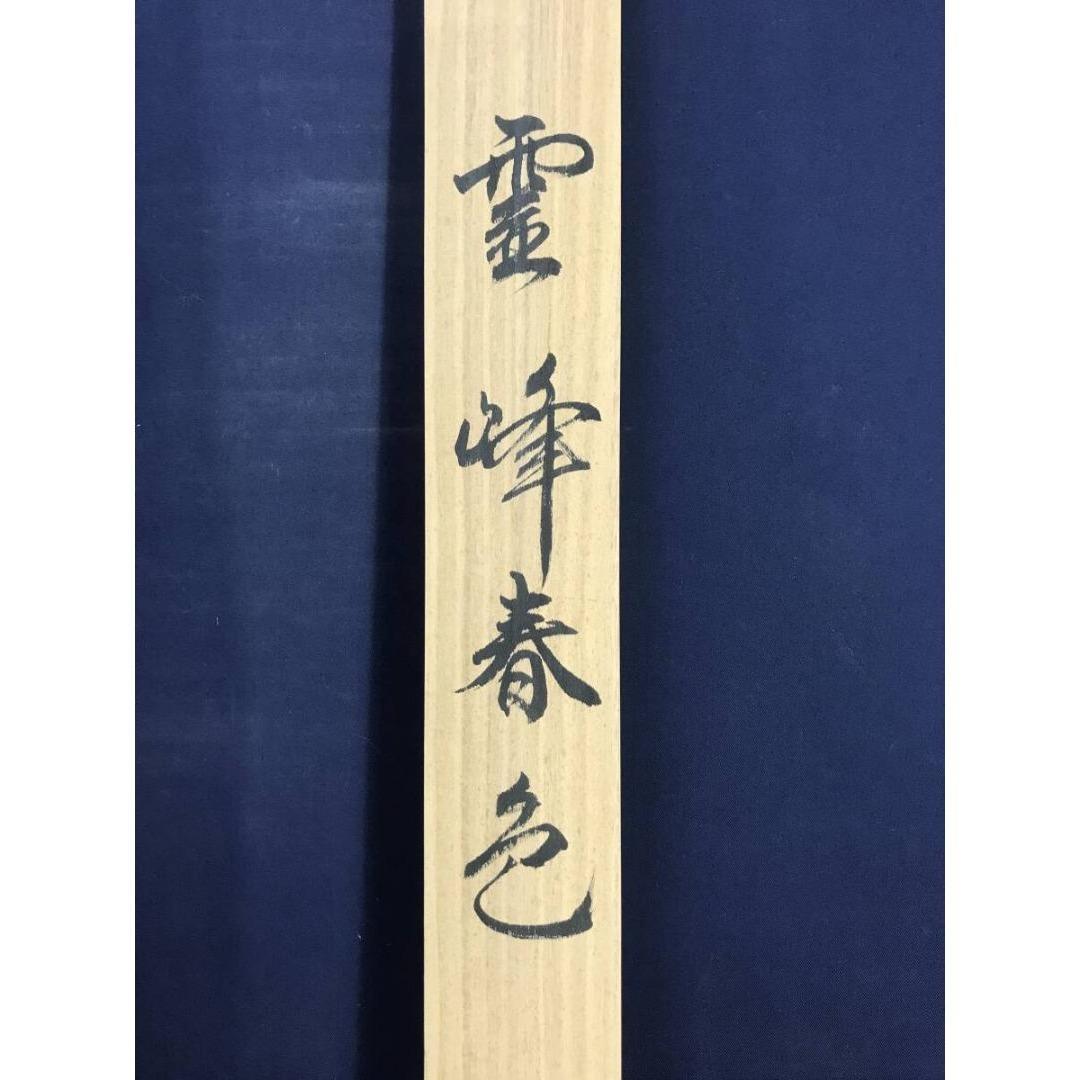 霊峰春色